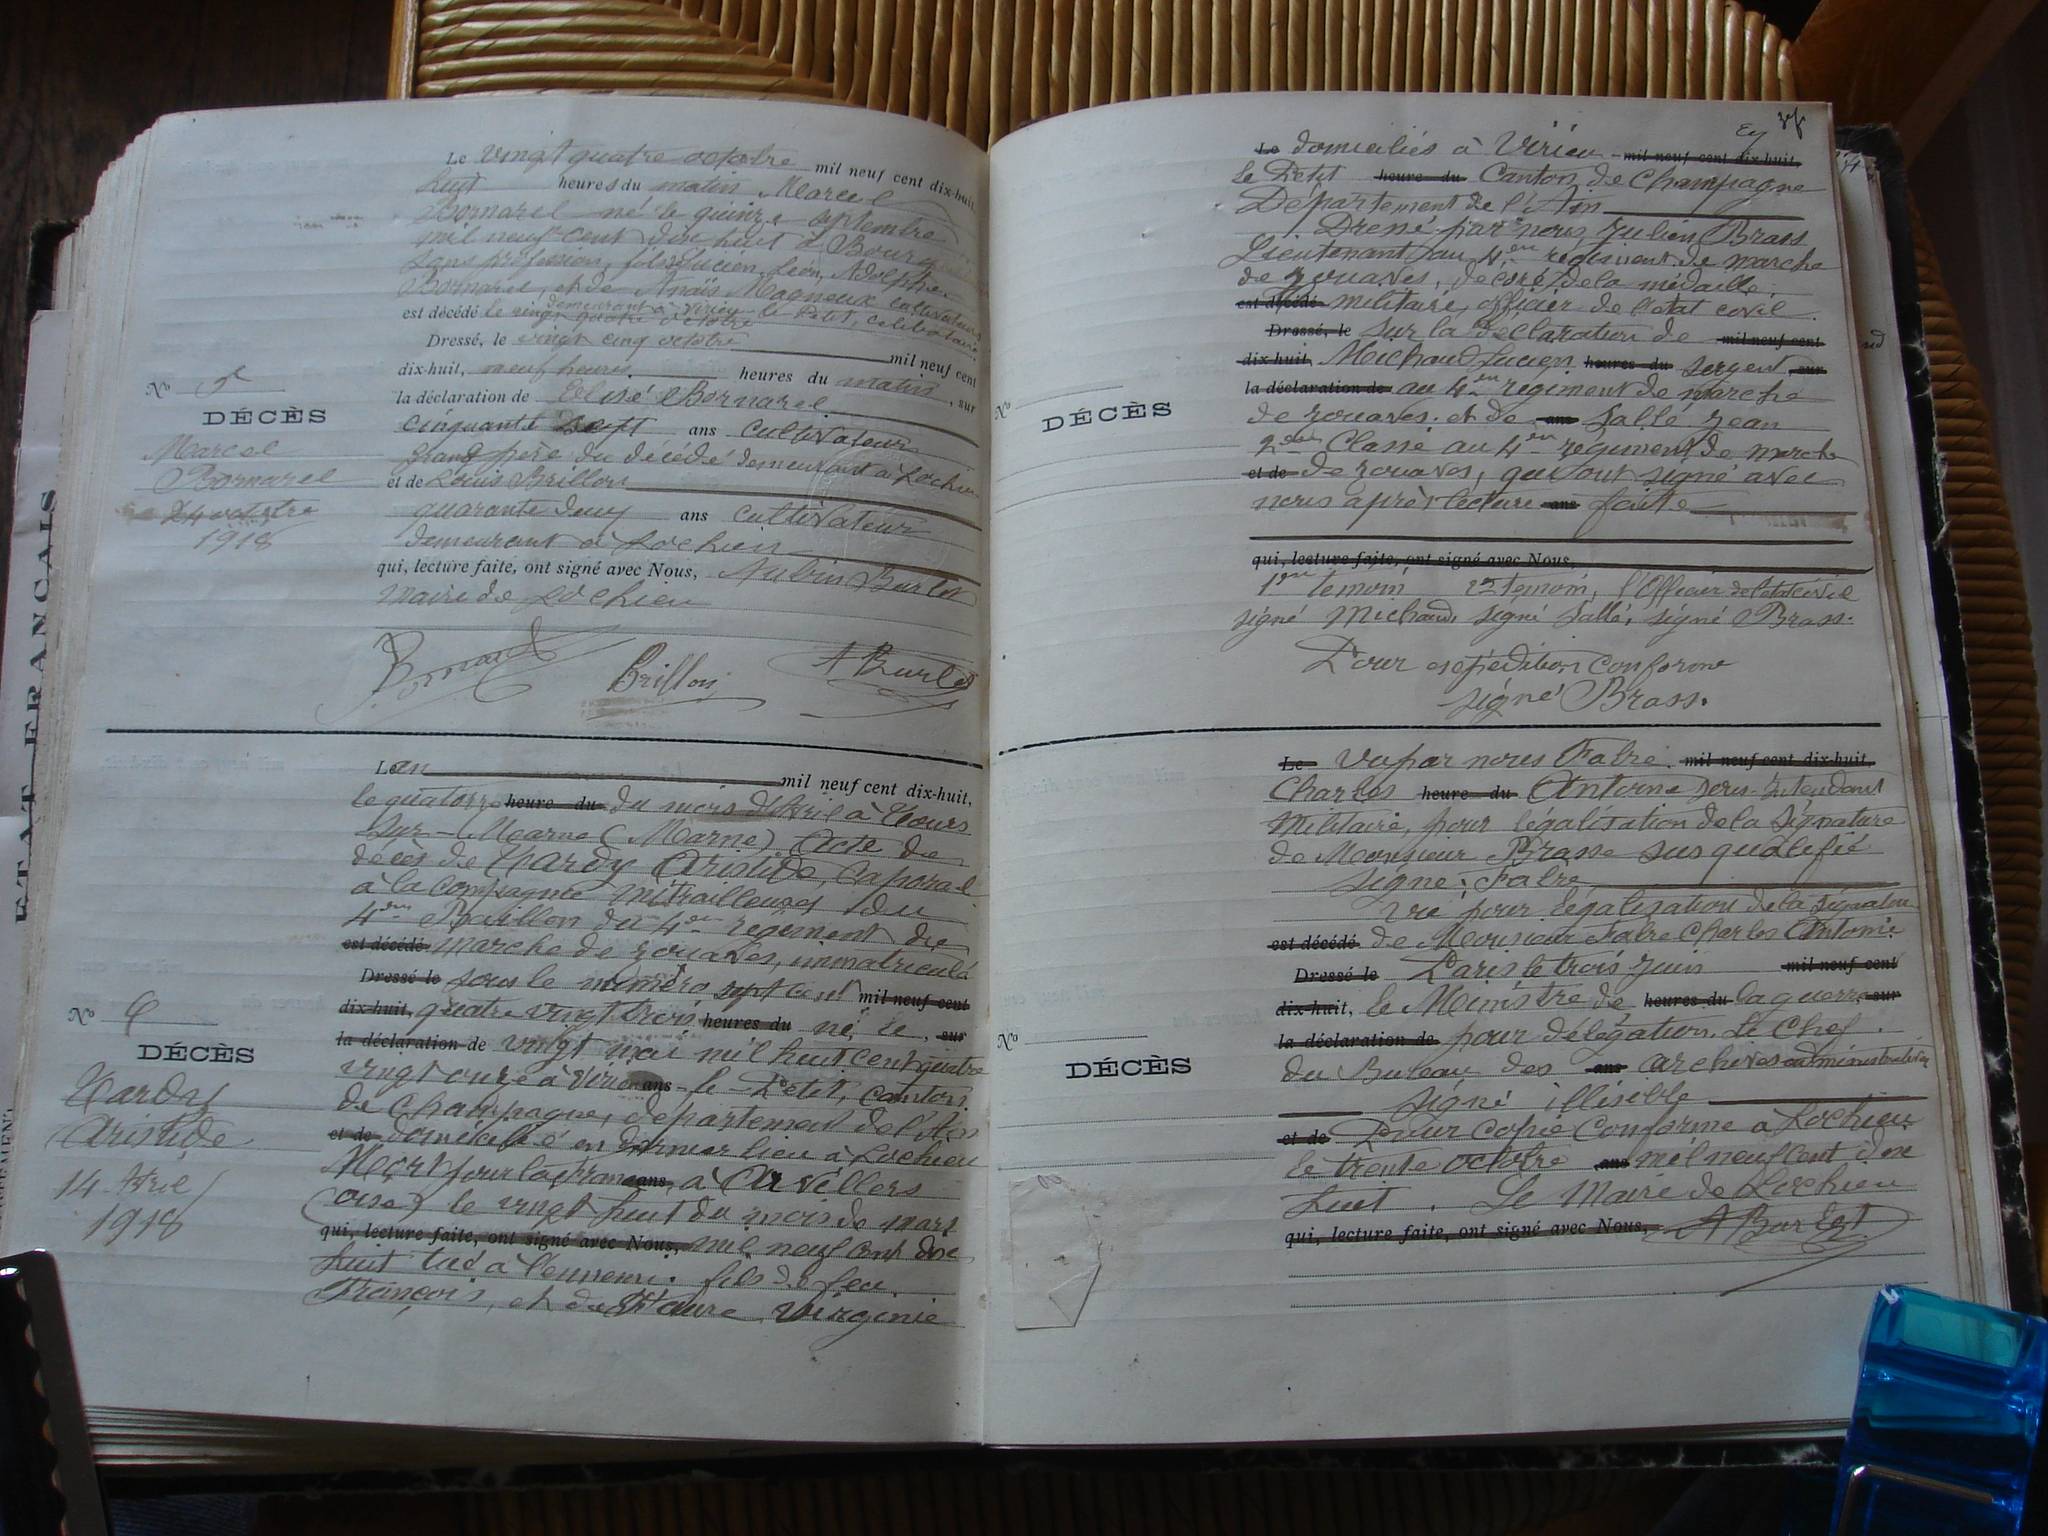 Le vingt quatre octobre mil neuf cent dix-huit,
huit heures du matin Marcel
Bornarel né le quinze septembre
mil neuf cent dix huit à Bourg
sans profession, fils de Lucien, Léon, Adolphe
Bornarel, et de Anaïs Magneux cultivateurs
demeurant à Virieu le Petit, célibataire
est décédé le vingt quatre octobre
Dressé, le vingt cinq octobre mil neuf cent
dix-huit, neuf heures heures du matin, sur
la déclaration de Elisé Bornarel
cinquante sept ans cultivateur
grand père du décédé demeurant à Lochieu
et de Louis Brillon
quarante deux ans cultivateur
demeurant à Lochieu
qui, lecture faite, ont signé avec Nous, Aubin Burlet
maire de Lochieu
Brillon
A Burlet
No 5
DÉCÈS
Marcel
Bornarel
24 octobre
1918
L'an mil neuf cent dix-huit,
le quatorze heure du du mois d'Avril à Tours
sur-Marne (Marne) Acte de
décès de Hardy Aristide, Caporal
à la Compagnie mitrailleuses du
4eme Bataillon du 4eme régiment de
est décédé marche de zouaves, immatriculé
Dressé le sous le numéro sept cent mil neuf cent
dix-huit, quatre vingt trois heures du né, le, sur
la déclaration de vingt mai mil huit cent quatre
vingt onze à Virieu ans - le - Petit, canton
de Champagne, département de l'Ain
et de domicilié en dernier lieu à Lochieu
Mort pour la france ans, à Orvillers
(oise) le vingt huit du mois de mars
qui, lecture faite, ont signé avec Nous, mil neuf cent dix
huit tué à l'ennemi. fils de feu
François, et de Favre Virginie
No 6
DÉCÈS
Hardy
Aristide
14 Avril
1918
Le domiciliés à Virieu - mil neuf cent dix-huit,
le Petit heure du Canton de Champagne
Département de l'Ain
Dressé par nous, Julien Brass
Lieutenant au 4eme régiment de marche
de zouaves, décoré de la médaille
est décédé militaire, officier de l'état civil
Dressé, le sur la déclaration de mil neuf cent
dix-huit, Michaud Lucien heures du sergent, sur
la déclaration de au 4eme régiment de marche
de zouaves. et de ans Sallé Jean
2eme Classe au 4eme régiment de marche
et de de zouaves, qui ont signé avec
nous après lecture ans faite
qui, lecture faite, ont signé avec Nous,
1er temoin 2e temoin, l'Officier de l'état civil
signé Michaud, signé Sallé, signé Brass.
Pour expédition conforme
signé Brass.
No
DÉCÈS
Le Vu par nous Fabre, mil neuf cent dix-huit,
Charles heure du Antoine sous-Intendant
Militaire, pour légalisation de la signature
de Monsieur Brasse sus qualifié
signé: Fabre
Vu pour légalisation de la signature
est décédé de Monsieur Fabre Charles Antoine
Dressé le Paris le trois Juin mil neuf cent
dix-huit, le Ministre de heures du la guerre sur
la déclaration de pour délégation. Le Chef
du Bureau des ans archives administratives
signé illisible
et de Pour copie conforme à Lochieu
le trente octobre ans mil neuf cent dix
huit. Le Maire de Lochieu
qui, lecture faite, ont signé avec Nous, A Burlet
No
DÉCÈS
ETAT FRANCAIS